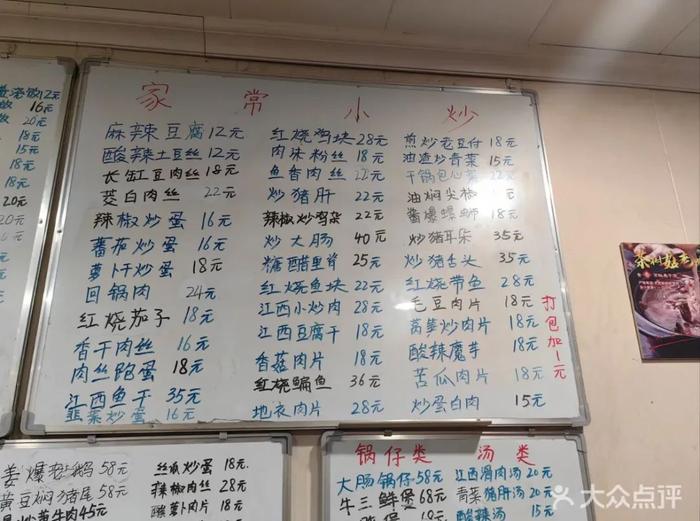 家常小炒
麻辣豆腐12元
酸辣土豆丝12元
长缸豆肉丝18元
茭白肉丝22元
辣椒炒蛋16元
蕃茄炒蛋16元
萝卜干炒蛋18元
回锅肉24元
红烧茄子18元
香干肉丝16元
肉丝跑蛋18元
江西鱼干35元
韭菜炒蛋16元
红烧鸡块28元
肉沫粉丝18元
鱼香肉丝22元
炒猪肝22元
辣椒炒鸡杂22元
炒大肠40元
糖醋里脊25元
红烧鱼块22元
江西小炒肉28元
江西豆腐干18元
香菇肉片18元
红烧鳊鱼36元
地衣肉片28元
煎炒老豆付18元
油渣炒青菜15元
干锅包心菜22元
油焖尖椒18元
酱爆螺蛳18元
炒猪耳朵35元
炒猪舌头35元
红烧带鱼28元
毛豆肉片18元
莴笋炒肉片18元
酸辣魔芋18元
苦瓜肉片18元
炒蛋白肉15元
打包加一元
12元
16元
20元
18元
15元
18元
20元
20元
20元
18元
姜爆老鹅58元
黄豆焖猪尾58元
牛肉45元
丝瓜炒蛋18元
辣椒肉丝28元
酸萝卜肉片18元
锅仔类
大肠锅仔58元
牛三鲜煲68元
汤类
江西滑肉汤20元
青菜猪肝汤20元
酸辣汤15元
大众点评